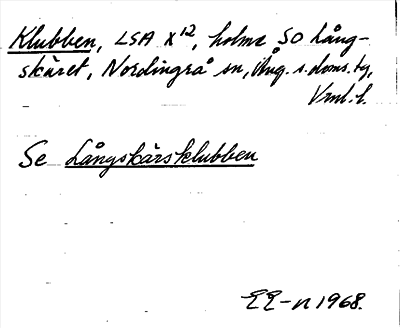 Klubben, LSA X¹², holme SO Lång-
skäret, Nordingrå sn, Ång. s. doms. tg,
Vrml. l.
Se Långskärsklubben
EE-n 1968.